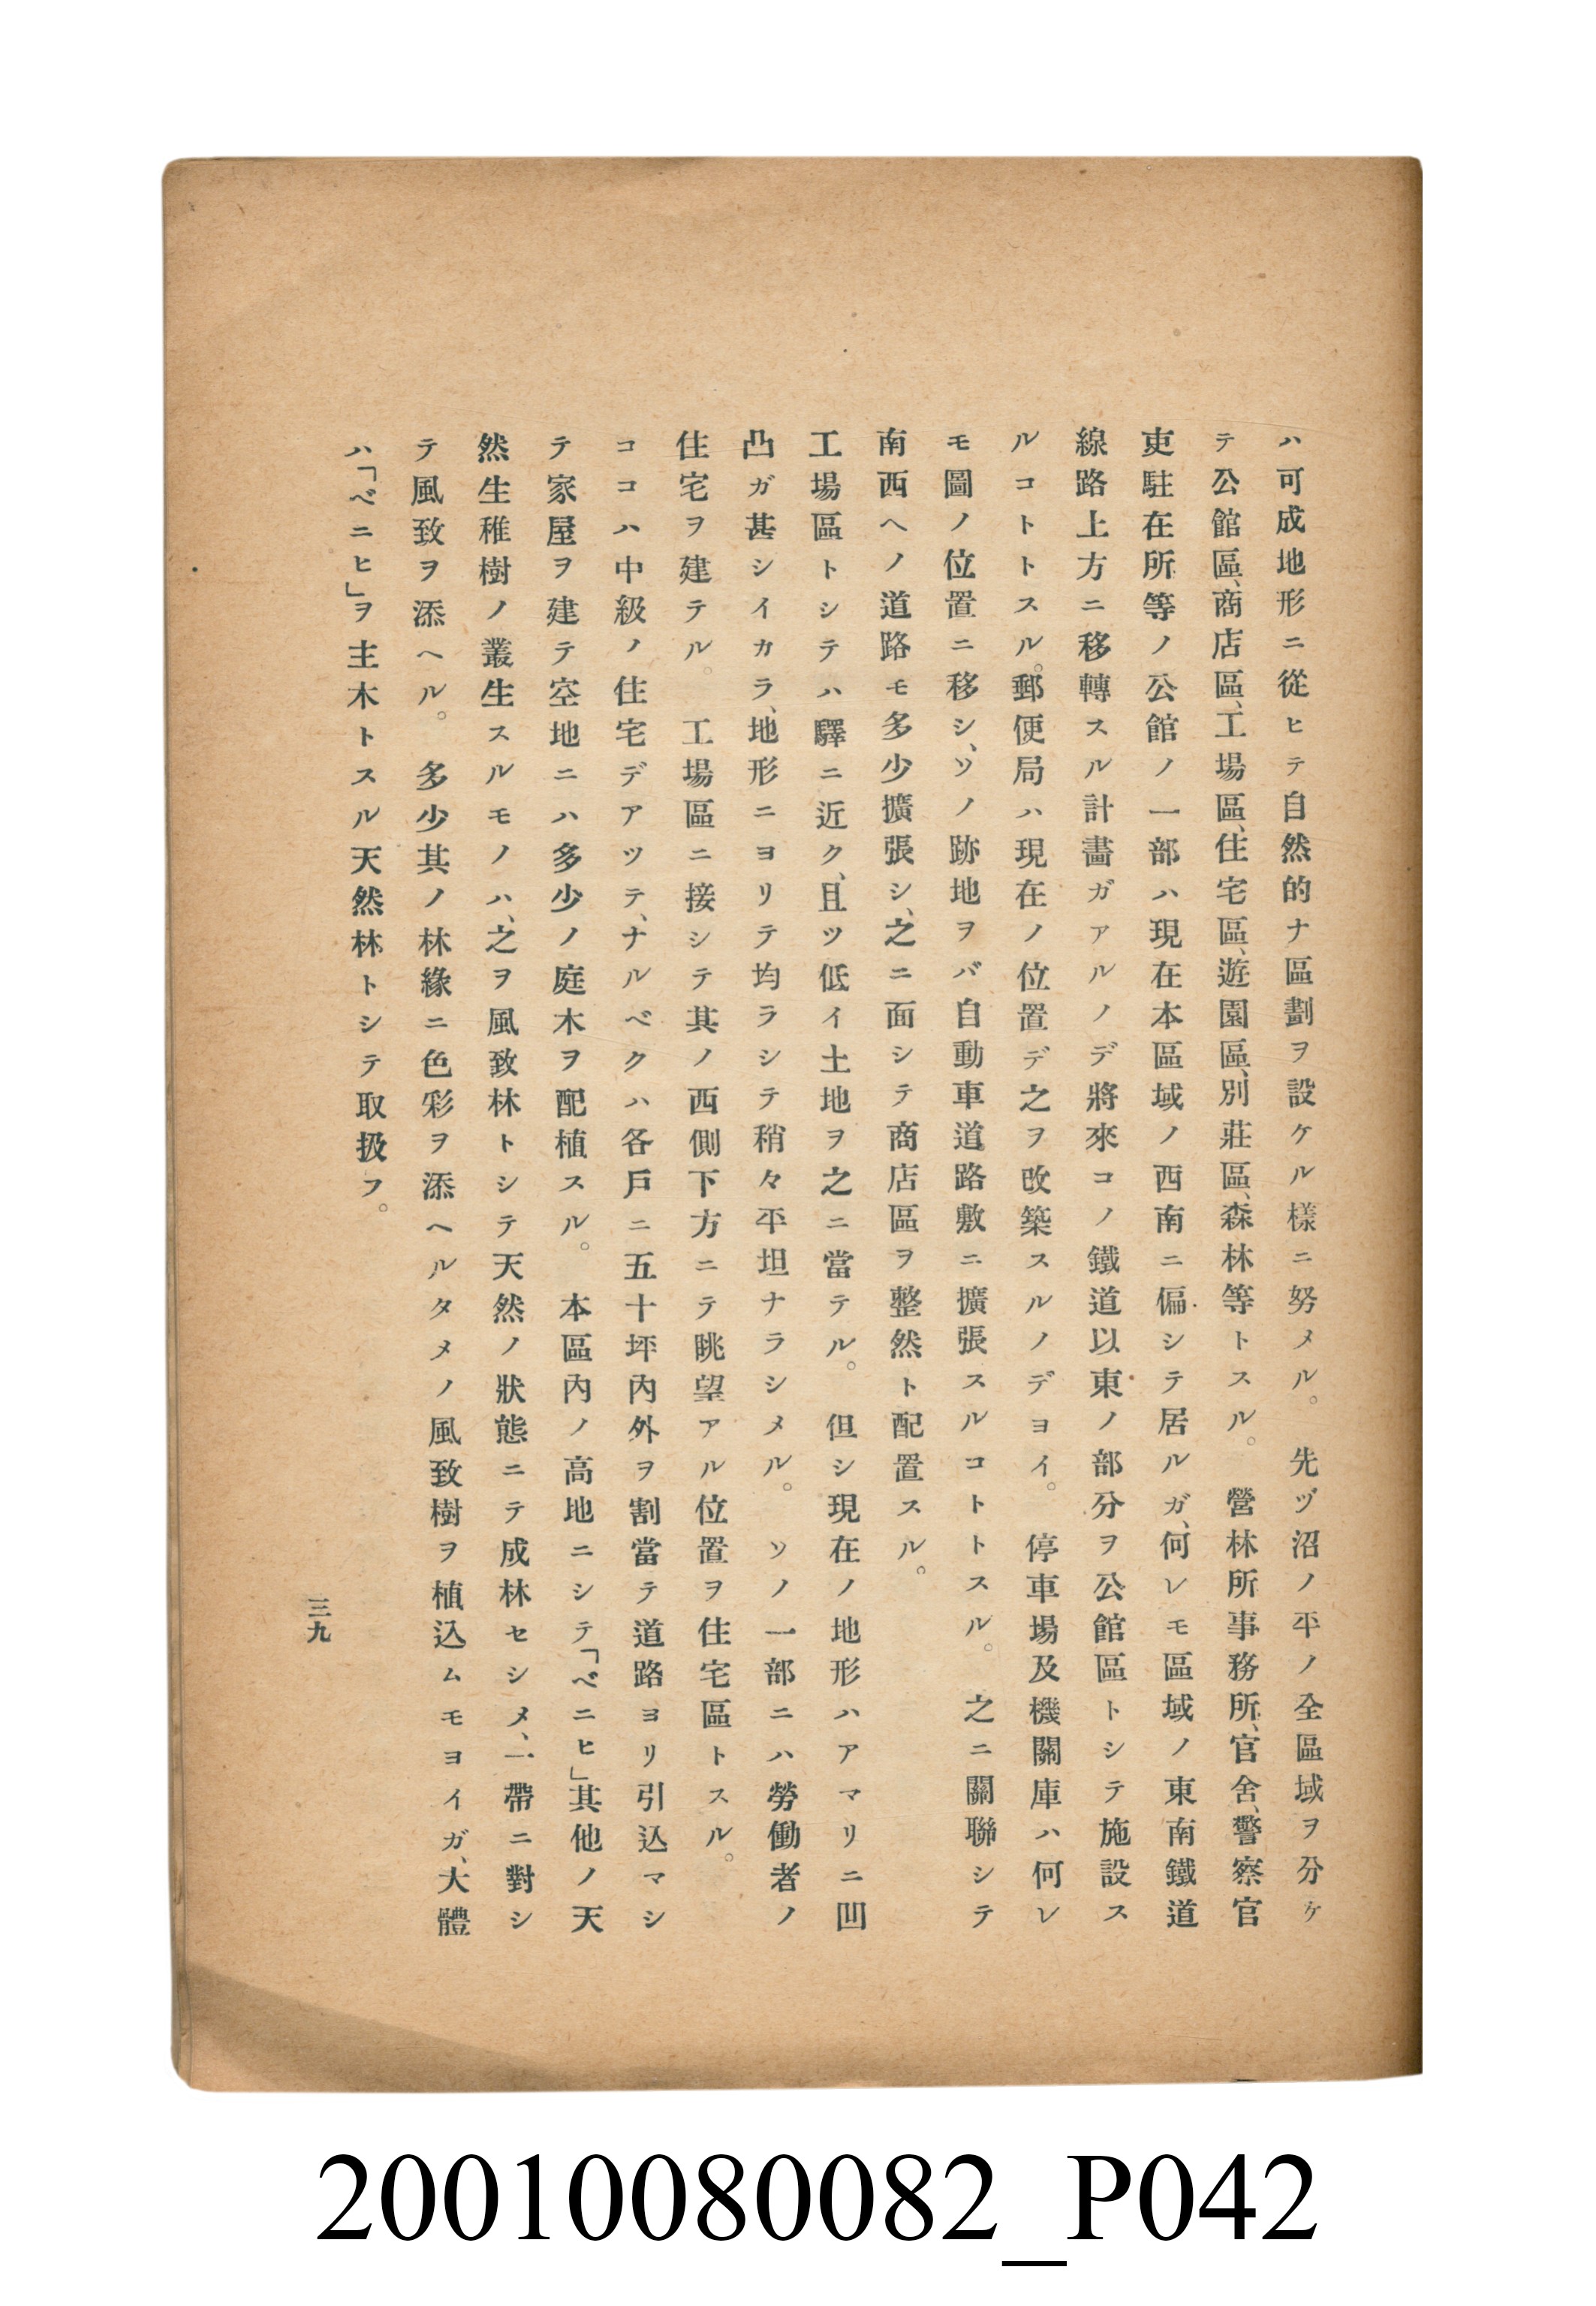 ハ可成地形ニ從ヒテ自然的ナ區劃ヲ設ケル樣ニ努メル。　先ヅ沼ノ平ノ全區域ヲ分ケ
テ公館區、商店區、工場區、住宅區、遊園區、別莊區、森林等トスル。　營林所事務所、官舍、警察官
吏駐在所等ノ公館ノ一部ハ現在本區域ノ西南ニ偏シテ居ルガ、何レモ區域ノ東南鐵道
線路上方ニ移轉スル計畵ガアルノデ將來コノ鐵道以東ノ部分ヲ公館區トシテ施設ス
ルコトトスル。郵便局ハ現在ノ位置デ之ヲ改築スルノデヨイ。　停車場及機關庫ハ何レ
モ圖ノ位置ニ移シ、ソノ跡地ヲバ自動車道路敷ニ擴張スルコトトスル。　之ニ關聯シテ
南西ヘノ道路モ多少擴張シ、之ニ面シテ商店區ヲ整然ト配置スル。
工場區トシテハ驛ニ近ク、且ツ低イ土地ヲ之ニ當テル。　但シ現在ノ地形ハアマリニ凹
凸ガ甚シイカラ、地形ニヨリテ均ラシテ稍々平坦ナラシメル。　ソノ一部ニハ勞働者ノ
住宅ヲ建テル。　工場區ニ接シテ其ノ西側下方ニテ眺望アル位置ヲ住宅區トスル。
ココハ中級ノ住宅デアツテ、ナルベクハ各戶ニ五十坪內外ヲ割當テ道路ヨリ引込マシ
テ家屋ヲ建テ空地ニハ多少ノ庭木ヲ配植スル。　本區內ノ高地ニシテ「ベニヒ」其他ノ天
然生稚樹ノ叢生スルモノハ、之ヲ風致林トシテ天然ノ狀態ニテ成林セシメ、一帶ニ對シ
テ風致ヲ添ヘル。　多少其ノ林緣ニ色彩ヲ添ヘルタメノ風致樹ヲ植込ムモヨイガ、大體
ハ「ベニヒ」ヲ主木トスル天然林トシテ取扱フ。
三九
20010080082_P042